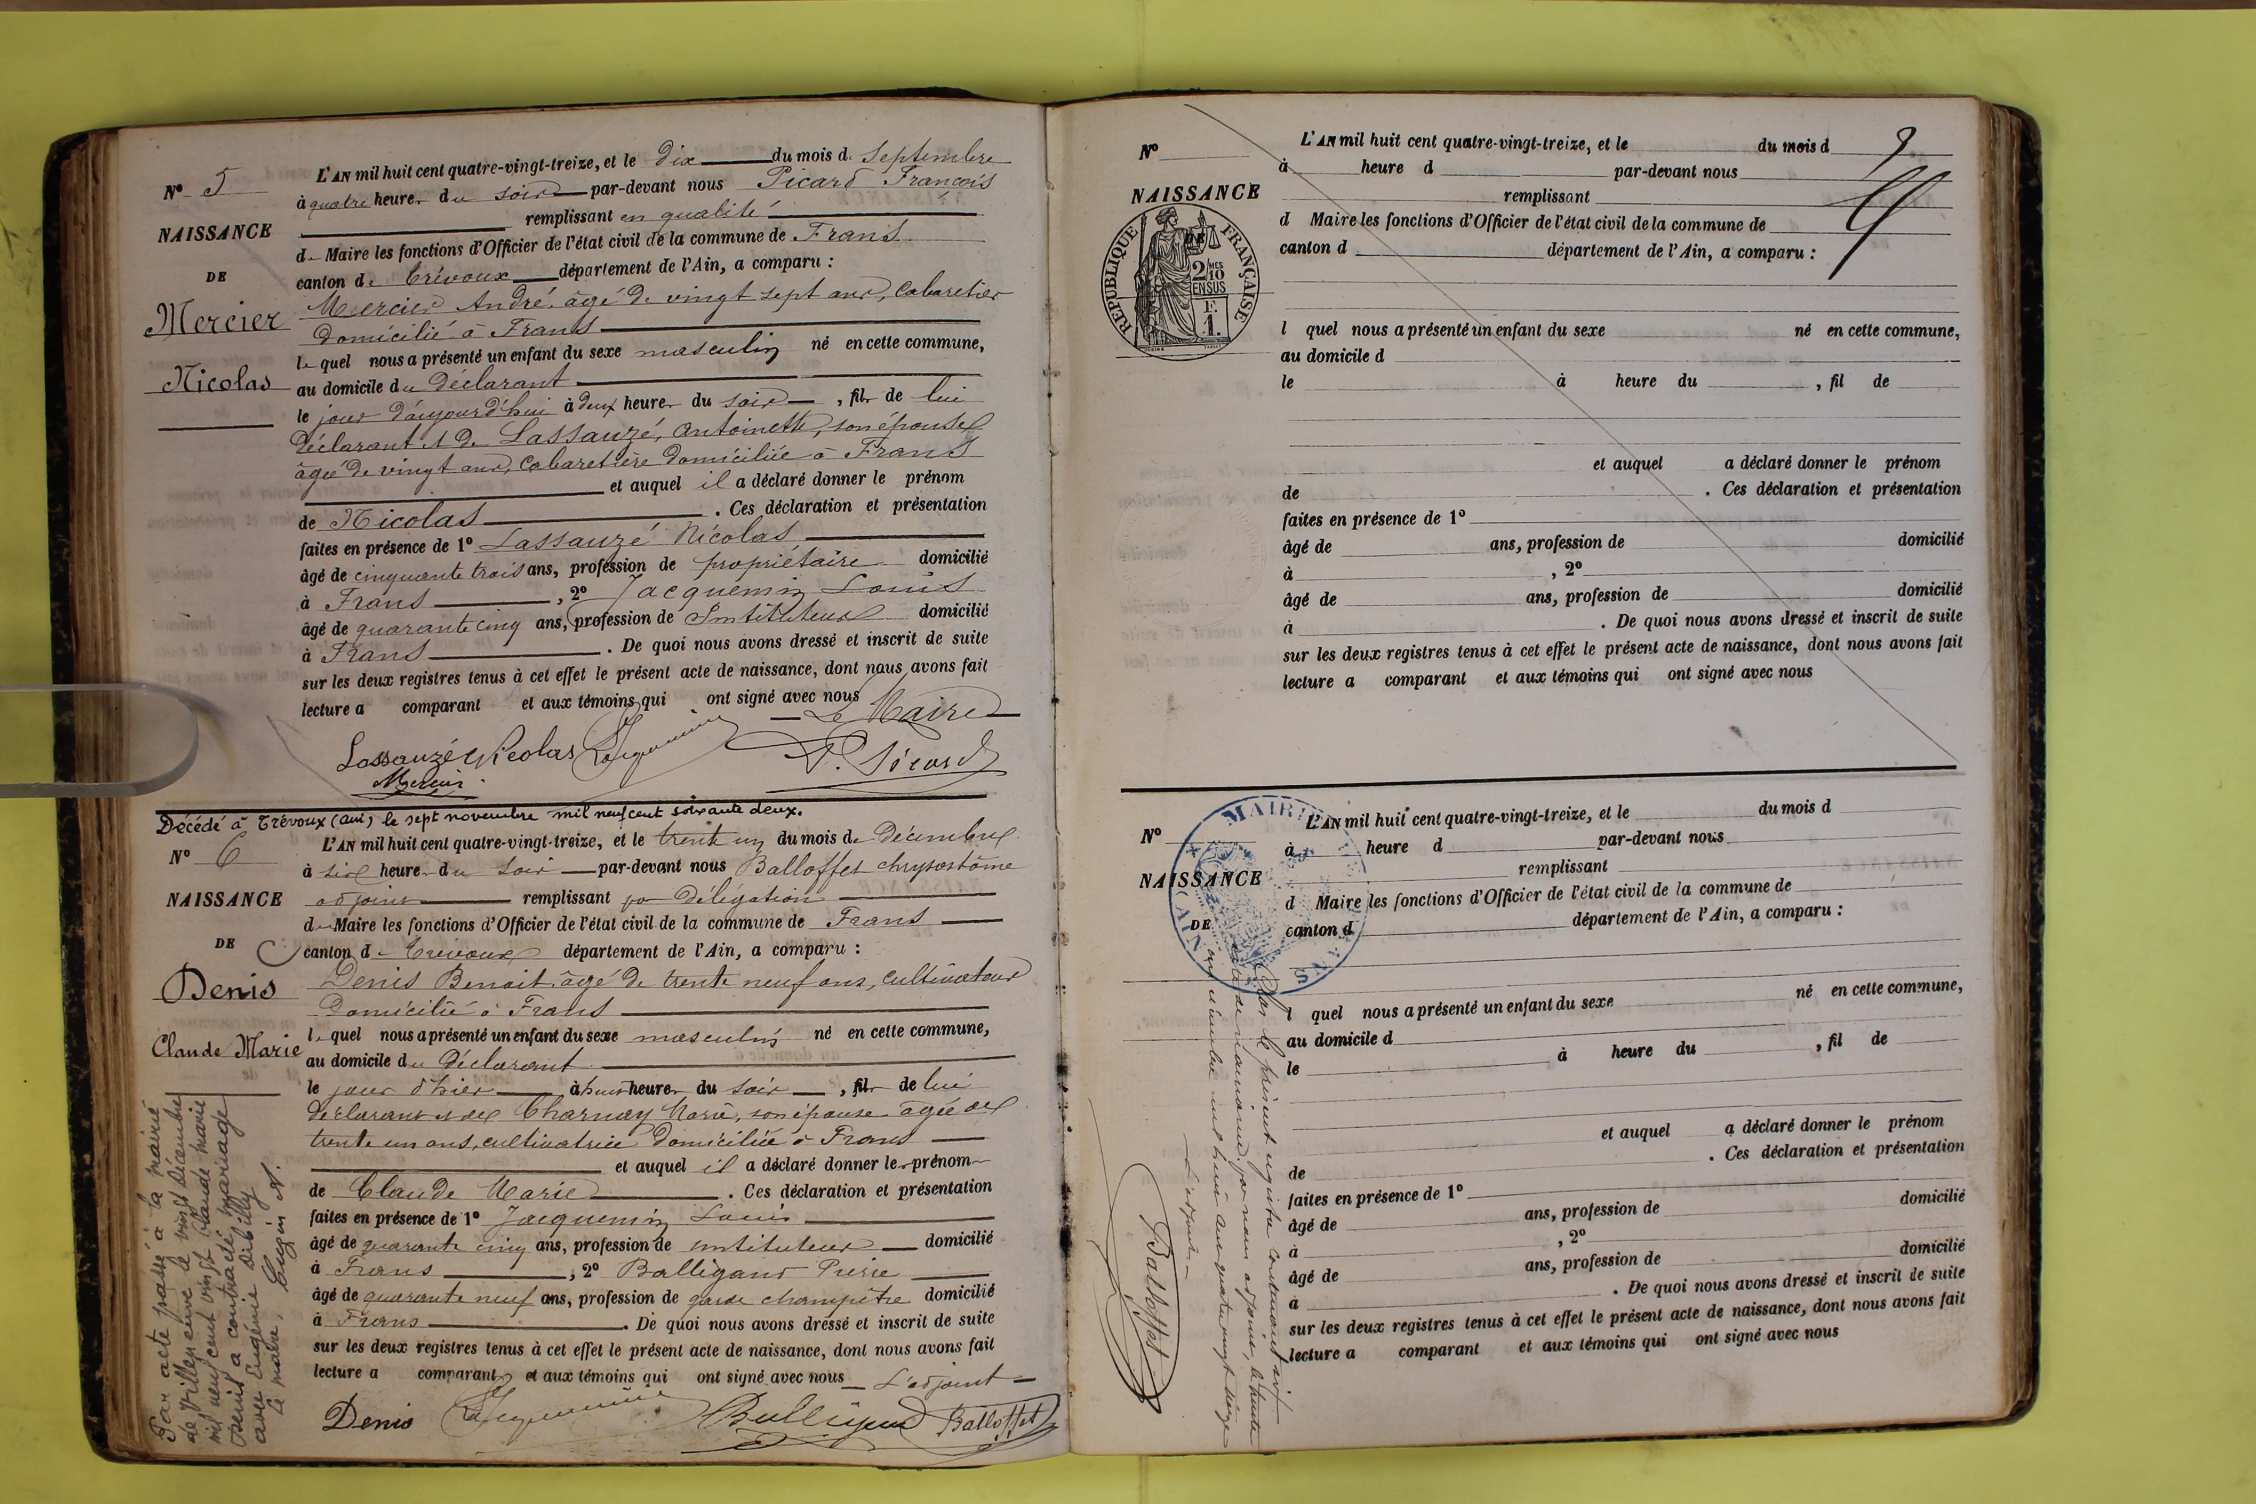 N° 5
NAISSANCE
DE
Mercier
Nicolas
L'AN mil huit cent quatre-vingt-treize, et le Dix du mois d. Septembre
à quatre heure. du soir par-devant nous Picard François
remplissant en qualité
de Maire les fonctions d'Officier de l'état civil de la commune de Frans
canton de Trévoux département de l'Ain, a comparu :
Mercier André, âgé de vingt sept ans, Cabaretier
Domicilié à Frans
le quel nous a présenté un enfant du sexe masculin né en cette commune,
au domicile du Déclarant
le jour d'aujourd'hui à deux heures du soir , fils de lui
Déclarant et de Lassauzé, Antoinette, son épouse
âgée de vingt ans, Cabaretière domiciliée à Frans
et auquel il a déclaré donner le prénom
de Nicolas . Ces déclaration et présentation
faites en présence de 1° Lassauzé Nicolas
âgé de cinquante trois ans, profession de propriétaire domicilié
à Frans , 2° Jacquemin Louis
âgé de quarante cinq ans, profession de Instituteur domicilié
à Frans . De quoi nous avons dressé et inscrit de suite
sur les deux registres tenus à cet effet le présent acte de naissance, dont nous avons fait
lecture a comparant et aux témoins qui ont signé avec nous
Le Maire
Lassauzé Nicolas Jacquemin P. Picard
Mercier
Décédé à Trévoux (Ain) le sept novembre mil neuf cent soixante deux.
N° 6
NAISSANCE
DE
Denis
Claude Marie
L'AN mil huit cent quatre-vingt-treize, et le trent un du mois de Décembre
à six heure du soir par-devant nous Balloffet Chrysostôme
adjoint remplissant par Délégation
de Maire les fonctions d'Officier de l'état civil de la commune de Frans
canton de Trévoux département de l'Ain, a comparu :
Denis Benoit, âgé de trente neuf ans, cultivateur
Domicilié à Frans
le quel nous a présenté un enfant du sexe masculin né en cette commune,
au domicile du Déclarant
le jour d'hier à huit heures du soir , fils de lui
Déclarant et de Charnay Marie, son épouse âgée de
trente un ans, cultivatrice Domiciliée à Frans
et auquel il a déclaré donner le prénom
de Claude Marie . Ces déclaration et présentation
faites en présence de 1° Jacquemin Louis
âgé de quarante cinq ans, profession de instituteur domicilié
à Frans , 2° Balligand Pierre
âgé de quarante neuf ans, profession de garde champêtre domicilié
à Frans . De quoi nous avons dressé et inscrit de suite
sur les deux registres tenus à cet effet le présent acte de naissance, dont nous avons fait
lecture a comparant et aux témoins qui ont signé avec nous L'adjoint
Denis Jacquemin Balligand Balloffet
Par acte passé à la mairie
de Villeneuve le vingt Décembre
mil neuf cent vingt Claude Marie
Denis a contracté mariage
avec Eugénie Dibilly
Le maire, Eugin N.
N°
NAISSANCE
DE
RÉPUBLIQUE FRANÇAISE
2/10 MES
EN SUS
F.
1.
L'AN mil huit cent quatre-vingt-treize, et le du mois d
à heure d par-devant nous
remplissant
d Maire les fonctions d'Officier de l'état civil de la commune de
canton d département de l'Ain, a comparu :
l quel nous a présenté un enfant du sexe né en cette commune,
au domicile d
le à heure du , fil de
et auquel a déclaré donner le prénom
de . Ces déclaration et présentation
faites en présence de 1°
âgé de ans, profession de domicilié
à , 2°
âgé de ans, profession de domicilié
à . De quoi nous avons dressé et inscrit de suite
sur les deux registres tenus à cet effet le présent acte de naissance, dont nous avons fait
lecture a comparant et aux témoins qui ont signé avec nous
N°
NAISSANCE
DE
MAIRIE
AIN
L'AN mil huit cent quatre-vingt-treize, et le du mois d
à heure d par-devant nous
remplissant
d Maire les fonctions d'Officier de l'état civil de la commune de
canton d département de l'Ain, a comparu :
l quel nous a présenté un enfant du sexe né en cette commune,
au domicile d
le à heure du , fil de
et auquel a déclaré donner le prénom
de . Ces déclaration et présentation
faites en présence de 1°
âgé de ans, profession de domicilié
à , 2°
âgé de ans, profession de domicilié
à . De quoi nous avons dressé et inscrit de suite
sur les deux registres tenus à cet effet le présent acte de naissance, dont nous avons fait
lecture a comparant et aux témoins qui ont signé avec nous
le présent registre contenant six
actes de naissance par nous adjoint, le trente
un décembre mil huit cent quatre vingt treize
L'adjoint
Balloffet